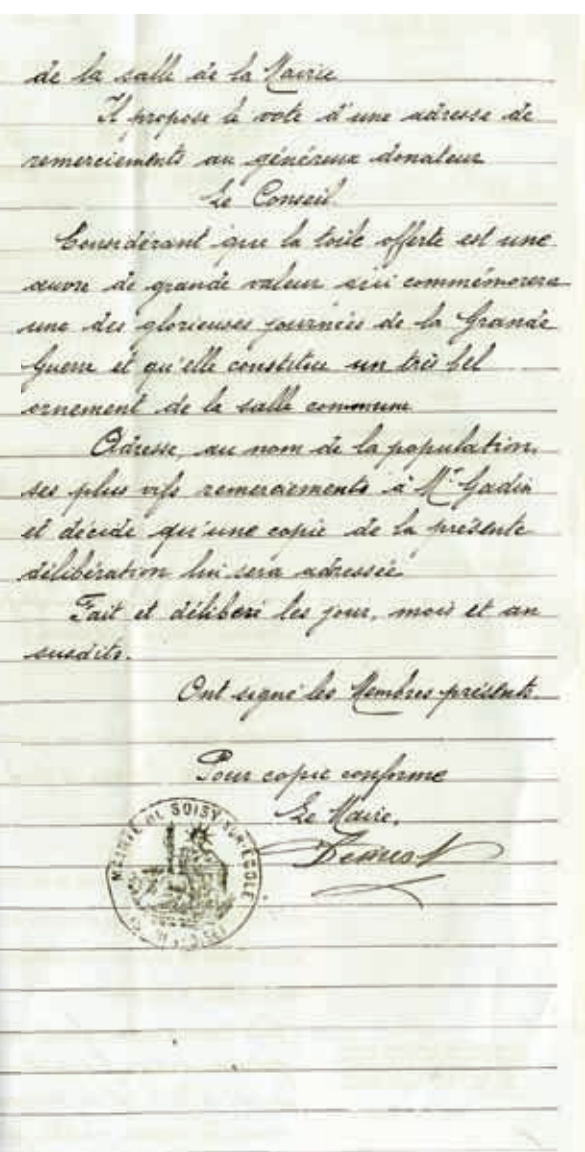 de la salle de la Mairie
Il propose le vote d'une adresse de
remerciements au généreux donateur
Le Conseil.
Considérant que la toile offerte est une
œuvre de grande valeur qui commémorera
une des glorieuses journées de la Grande
Guerre et qu'elle constitue un très bel
ornement de la salle commune
Adresse, au nom de la population,
ses plus vifs remerciements à Mr Gadin
et décide qu'une copie de la présente
délibération lui sera adressée.
Fait et délibéré les jour, mois et an
susdits.
Ont signé les Membres présents.
Pour copie conforme
Le Maire,
MAIRIE DE SOISY SUR ECOLE